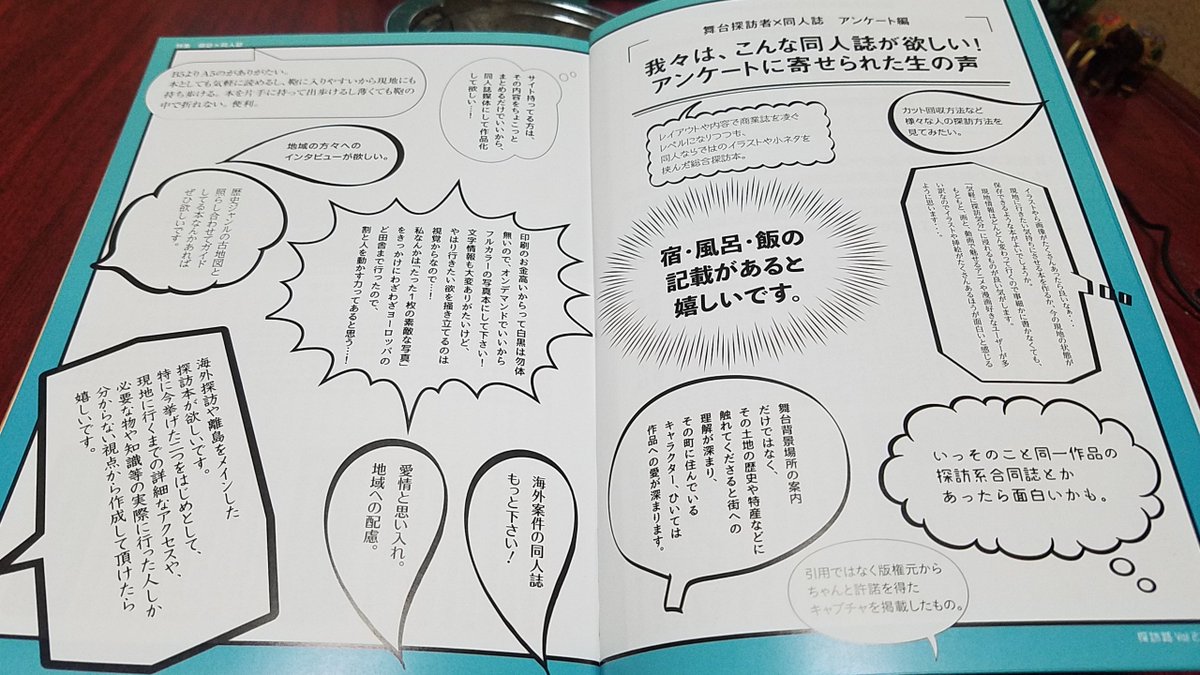 舞台探訪者×同人誌　アンケート編
我々は、こんな同人誌が欲しい!
アンケートに寄せられた生の声
カット回収方法など
様々な人の探訪方法を
見てみたい。
レイアウトや内容で商業誌を凌ぐ
レベルになりつつも、
同人ならではのイラストや小ネタを
挟んだ総合探訪本。
イラストやら画像がたくさんあったら良いなぁ・・・
現地に行きたい気持ちにさせる本を作るか、今の現地の状態が
保存できるような本がよいでしょうか。
現地情報はどんどん変わって行くので事細かに書かなくても、
「気軽に探訪気分」に浸れるものが良い気がします。
もともと、画と、動画で魅せるアニメや漫画好きなユーザーが多
い訳なのでイラストや挿絵がたくさんあるほうが面白いと感じる
ように思います・・・
宿・風呂・飯の
記載があると
嬉しいです。
舞台背景場所の案内
だけではなく、
その土地の歴史や特産などに
触れてくださると街への
理解が深まり、
その町に住んでいる
キャラクター、ひいては
作品への愛が深まります。
いっそのこと同一作品の
探訪系合同誌とか
あったら面白いかも。
引用ではなく版権元から
ちゃんと許諾を得た
キャプチャを掲載したもの。
探訪路 Vol
特集　探訪×同人誌
B5よりA5のがありがたい。
本としても気軽に読めるし、鞄に入りやすいから現地にも
持ち歩ける。本を片手に持って出歩けるし薄くても鞄の
中で折れない。便利。
サイト持ってる方は、
その内容をちょこっと
まとめるだけでいいから、
同人誌媒体にして作品化
して欲しい…!
地域の方々への
インタビューが欲しい。
歴史ジャンルの古地図と
照らし合わせてガイド
してる本なんかあれば
ぜひ欲しいです。
印刷のお金高いからって白黒は勿体
無いので、オンデマンドでいいから
フルカラーの写真本にして下さい!
文字情報も大変ありがたいけど、
やはり行きたい欲を掻き立てるのは
視覚からなので…!
私なんかは「たった1枚の素敵な写真」
をきっかけにわざわざヨーロッパの
ど田舎まで行ったので、
割と人を動かす力ってあると思う…!
海外案件の同人誌
もっと下さい!
愛情と思い入れ。
地域への配慮。
海外探訪や離島をメインした
探訪本が欲しいです。
特に今挙げた二つをはじめとして、
現地に行くまでの詳細なアクセスや、
必要な物や知識等の実際に行った人しか
分からない視点から作成して頂けたら
嬉しいです。